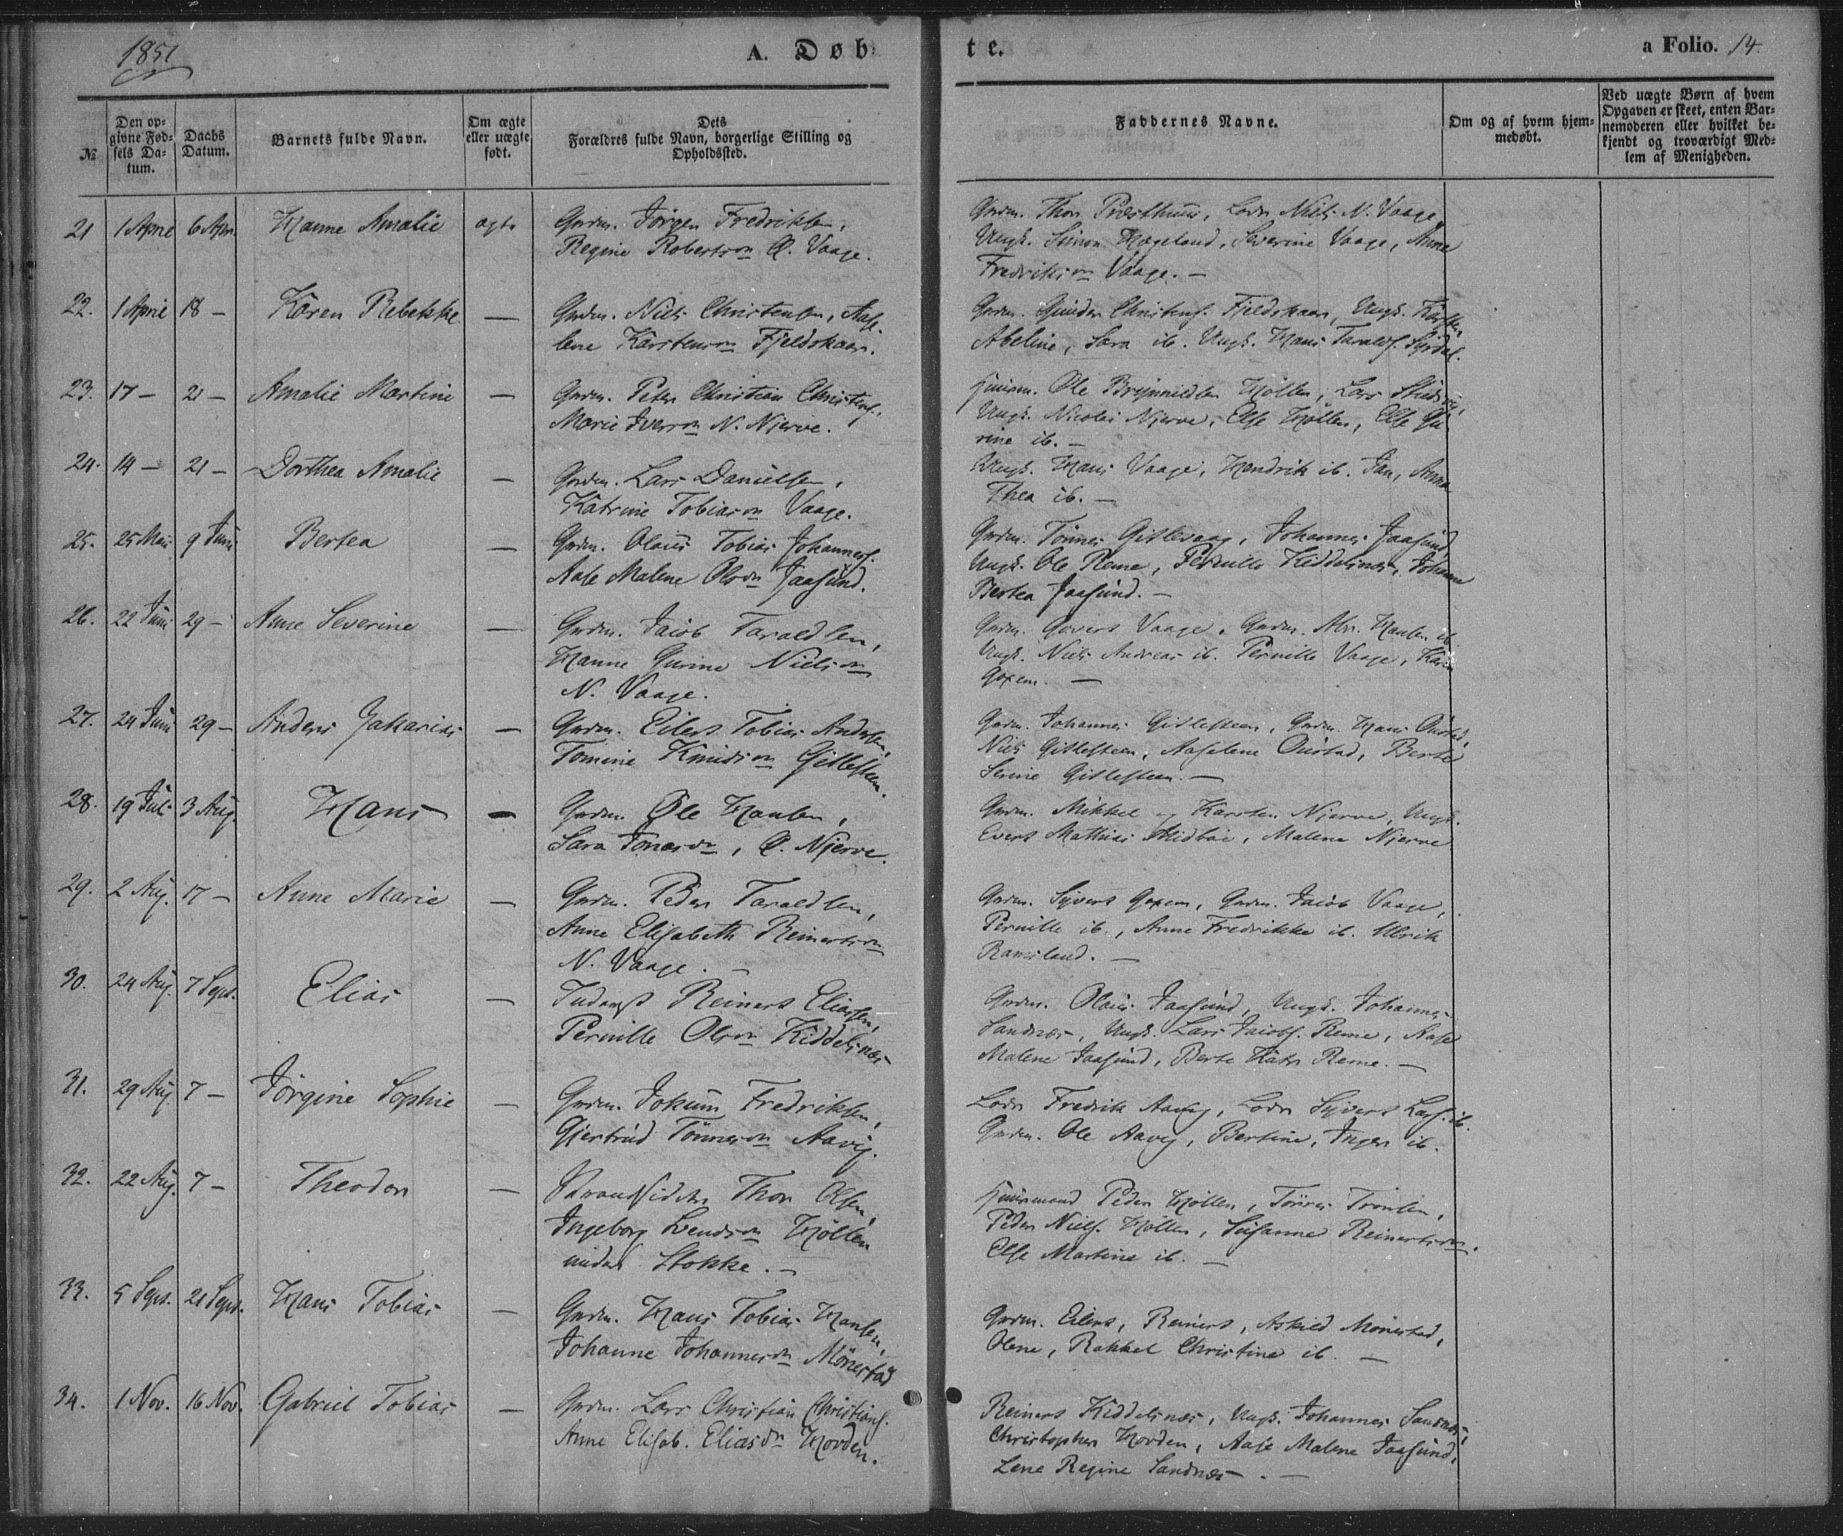 1851
A. Døbte.
a Folio. 14.
№
Den opgivne Fødsels Datum.
Daabs Datum.
Barnets fulde Navn.
Om ægte eller uægte født.
Dets Forældres fulde Navn, borgerlige Stilling og Opholdssted.
Faddernes Navne.
Om og af hvem hjemmedøbt.
Ved uægte Børn af hvem Opgaven er skeet, enten Barnemoderen eller hvilket bekjendt og troværdigt Medlem af Menigheden.
21 1 April 6 Apr. Hanne Amalie ægte Grdm. Jörgen Fredriksen,
Regine Robertsdn Ø. Vaage.
Grdm. Thor Præsthuus, Lods Niels N. Vaage,
Ungk. Simon Hogeland, Severine Vaage, Anne
Fredriksdn Vaage. —
22. 1 April 18 — Karen Rebekke — Grdm. Niels Christensen, Aase
lene Karstensdn Fjeldskaar.
Grdm. Gunder Christens. Fjeldskaar, Ungk. Karsten,
Abeline, Sara ib. Ungk. Hans Taralds. Syrdal.
23. 17 — 21 — Amalie Martine — Grdm. Peter Christian Christens.
Marie Iversdn N. Njerve.
Huusm. Ole Brynnildsen Höllen, Lars
Ungk. Nicolai Njerve, Else Höllen, Else Gu
rine ib. —
24. 14 — 21 — Dorthea Amalie — Grdm. Lars Danielsen,
Katrine Tobiasdn Vaage.
Ungk. Hans Vaage, Hendrik ib. Jan, Anna
Thea ib. —
25. 25 Mai 9 Juni Bertea — Grdm. Olaus Tobias Johannes.
Aase Malene Olsdn Jaasund.
Grdm. Tönnes Gislevaag, Johannes Jaasund,
Ungk. Ole Reme, Pernille Kiddelsnæs, Johanne
Bertea Jaasund. —
26. 22 Juni 29 — Anne Severine — Grdm. Jacob Taraldsen,
Hanne Gurine Nielsdn
N. Vaage.
Grdm. Govert Vaage, Grdm. Abr. Hansen ib.
Ungk. Niels Andreas ib. Pernille Vaage, Karen
Goxem. —
27. 24 Juni 29 — Anders Zakarias — Grdm. Eilert Tobias Anders.
Tomine Knudsdn Gitlesteen.
Grdm. Johannes Gitlesteen, Grdm. Hans Önstad,
Niels Gitlesteen, Aaselene Önstad, Berte
Serine Gitlesteen. —
28. 19 Jul. 3 Aug. Hans — Grdm. Ole Hansen,
Sara Jonasdn, Ø. Njerve.
Grdm. Mikkel og Karsten Njerve, Ungk.
Evert Mathias Midbøe, Malena Njerve
29. 2 Aug. 17 — Anne Marie — Grdm. Peder Taraldsen,
Anne Elisabeth Reinertsdn
N. Vaage. —
Grdm. Syvert Goxem, Grdm. Jacob Vaage,
Pernille ib., Anne Fredrikke ib. Ulrik
Ramsland. —
30. 24 Aug. 7 Sept. Elias — Inderst Reinert Eliassen,
Pernille Olsdn Kiddelsnæs
Grdm. Olaus Jaasund, Ungk. Johannes
Sandnæs, Ungk. Lars Jacobs. Reme, Aase
Malene Jaasund, Berte Kats Reme. —
31. 29 Aug. 7 — Jörgine Sophie — Grdm. Jokum Fredriksen,
Gjertrud Tönnesdn Aavig.
Lods Fredrik Aavig, Lods Syvert Lars. ib.
Grdm. Ole Aavig, Bertine, Inger ib.
32. 22 Aug. 7 — Theodor — Strandsidder Thor Olsen,
Ingeborg Bendsdn Höllen
under Stokke. —
Huusmand Peder Höllen, Törres Tronsen,
Peder Niels. Höllen, Susanne Reinertsdn.
Else Martine ib. —
33. 5 Sept. 21 Sept. Hans Tobias — Grdm. Hans Tobias Hansen,
Johanne Johannesdn Mönestad
Grdm. Eilert, Reinert, Askild Mönestad,
Olene, Rakkel Christine ib. —
34. 1 Nov. 16 Nov. Gabriel Tobias — Grdm. Lars Christian Christians.
Anne Elisab. Eliasdn Hovden.
Reinert Kiddelsnæs, Ungk. Johannes Sandnæs,
Christopher Hovden, Aase Malene Jaasund,
Lene Regine Sandnæs. —